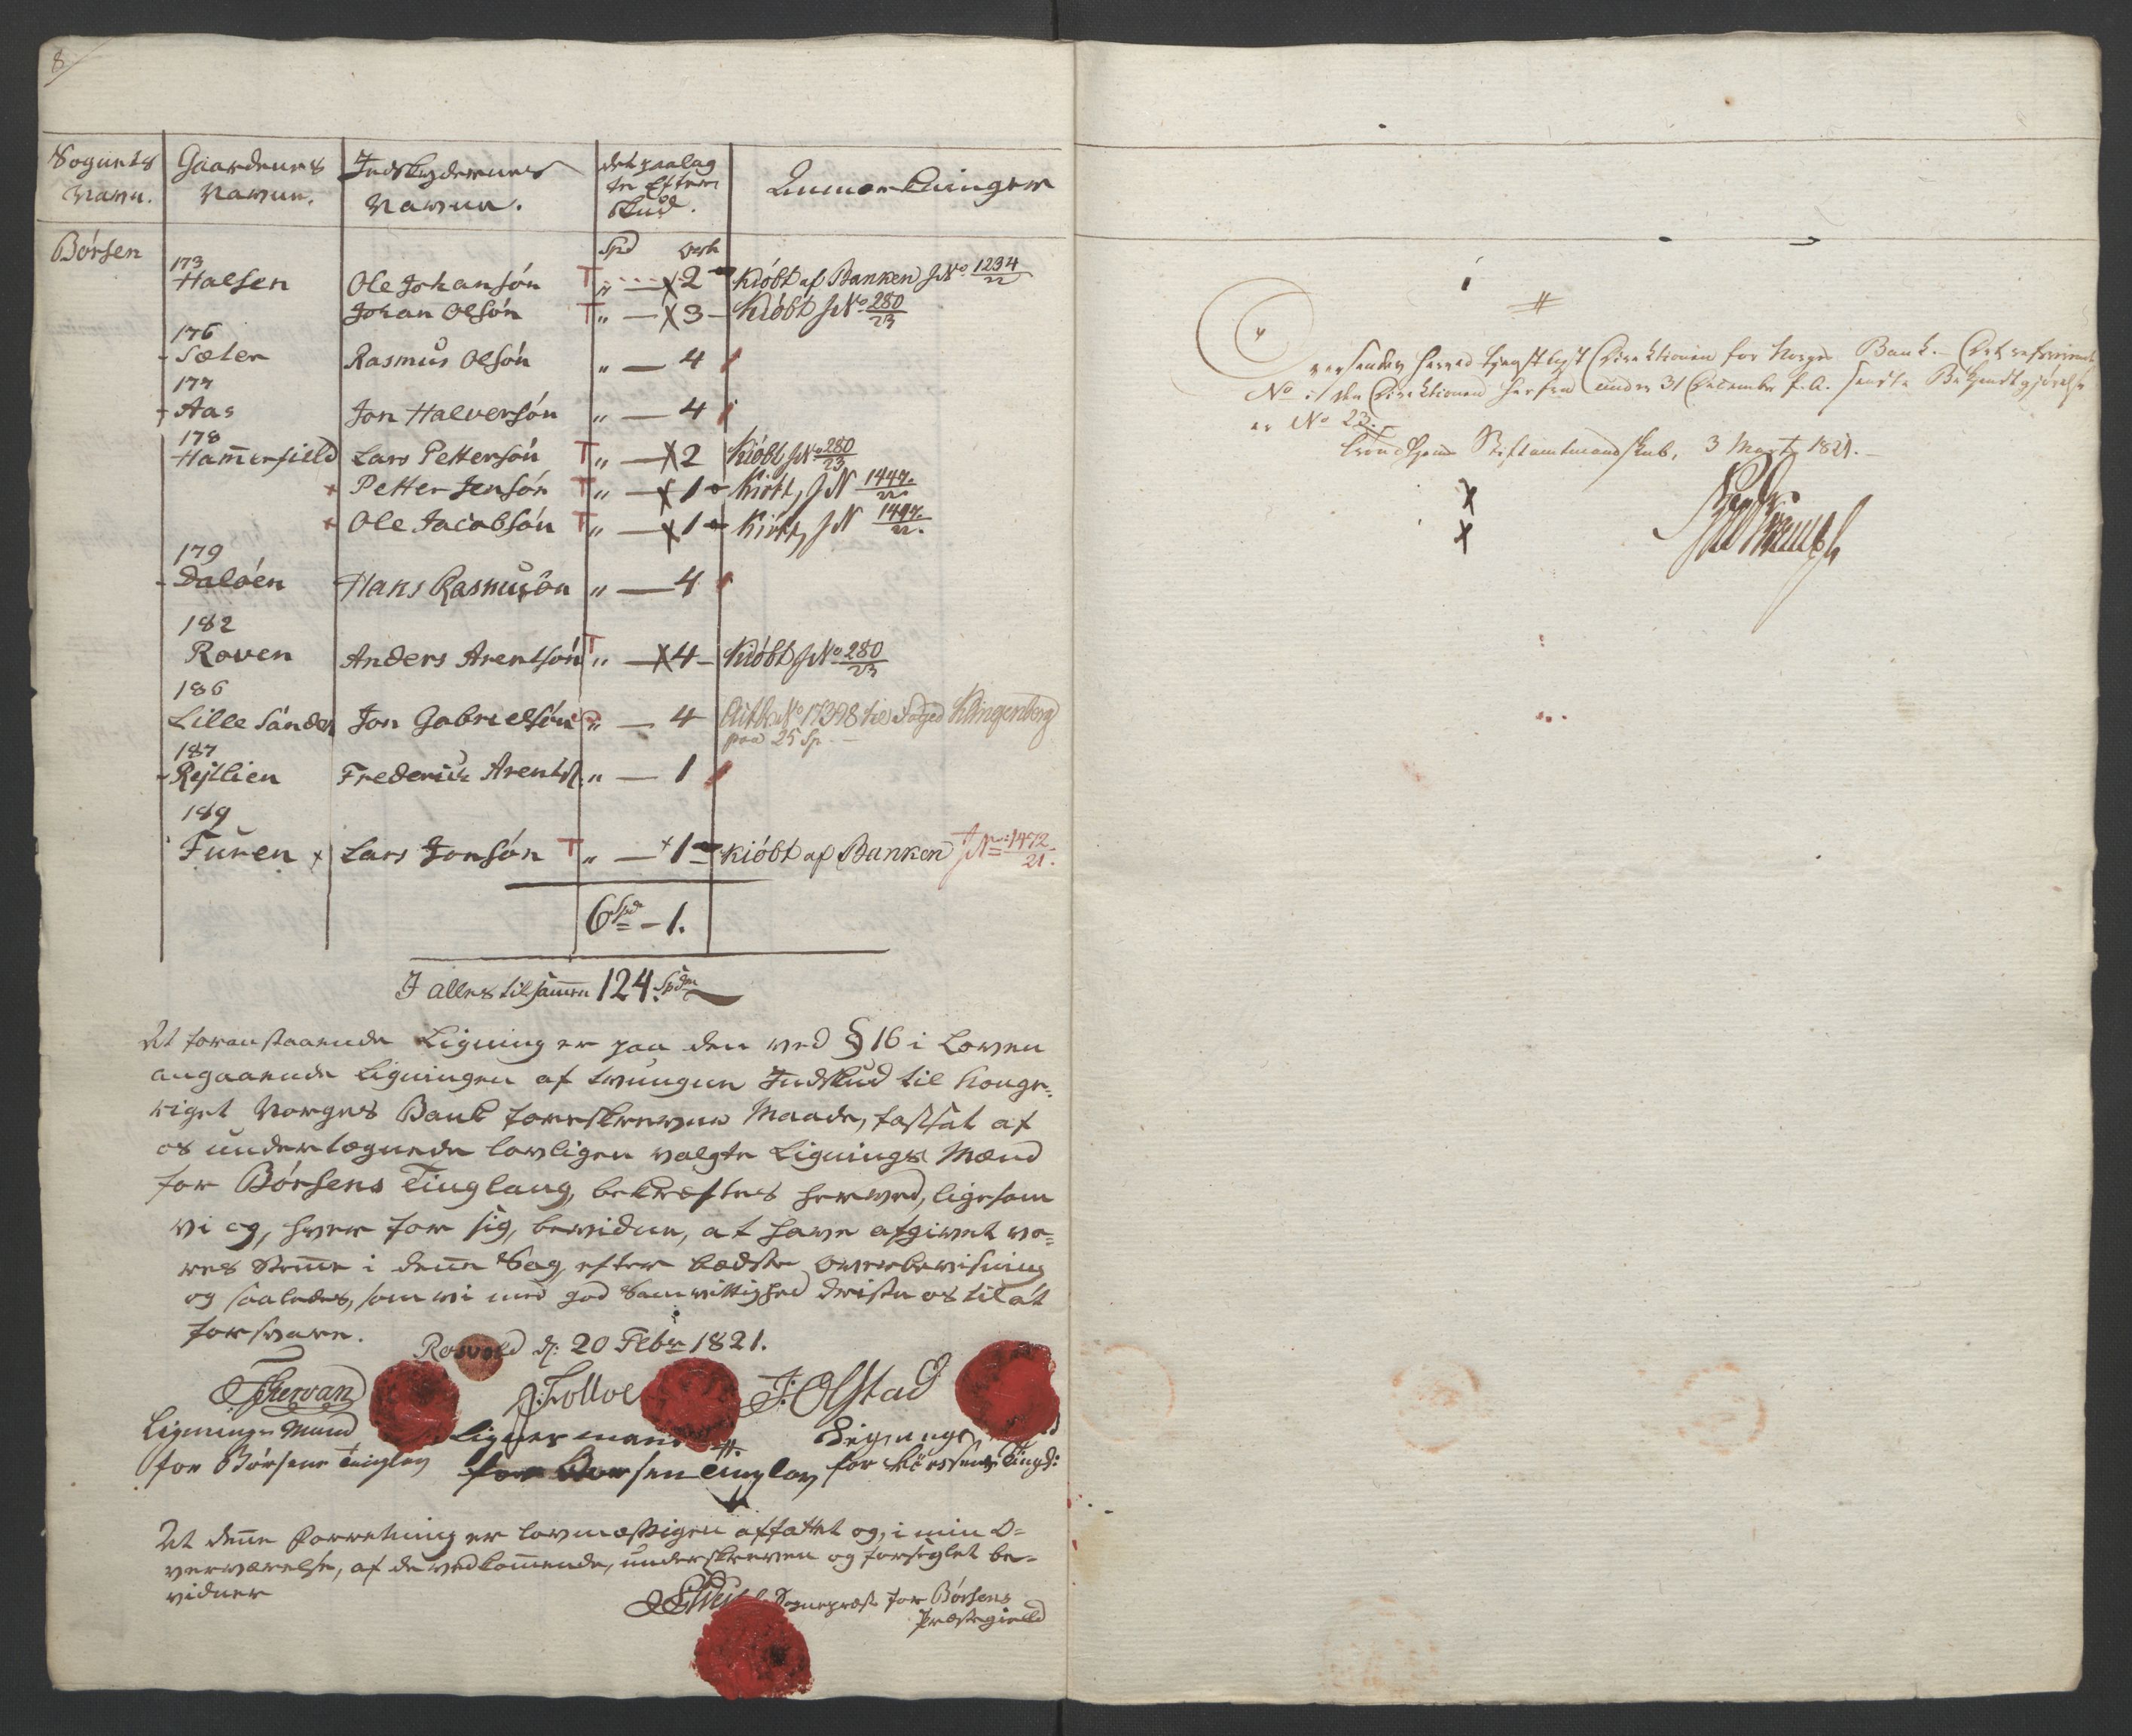 8
Sognets Navn. Gaardenes Navne. Indskydernes Navne. det paalagte Efterskud. Anmærkninger
Børsen Spd ort
173
Halsen Ole Johansøn T " — x 2 Kiøbt af Banken JNo 1234/22
Johan Olsøn T " — x 3 — Kiøbt JNo 280/23
176
Sæter Rasmus Olsøn " — 4
177
Aas Jon Halversøn " — 4
178
Ham̅erfield Lars Pettersøn T " — x 2 Kiøbt JNo 280/23
x Petter Jensøn T " — x 1 Kiøbt, JN 1447/22
x Ole Jacobsøn T " — x 1 Kiøbt, JN 1447/22.
179
Daløen Hans Rasmusøn " — 4
182
Roven Anders Arentsøn T " — x 4 — Kiøbt JNo 280/23
186
Lille Sandes Jon Gabrielsøn " — 4 No 17398 til Foged Klingenberg
paa 25 Sp. —
187
Rejtlien Frederich Arents. " — 1
189
Furen x Lars Jonsøn T " — x 1 Kiøbt af Banken JNo: 1472/21.
6 Spd — 1.
I alles tilsam̅en 124 Spdr
At foranstaaende Ligning er paa den ved § 16 i Loven
angaaende Ligningen af tvungne Indskud til Konge-
riget Norges Bank foreskrevne Maade, fastsat af
os undertegnede lovligen valgte Lignings Mænd
for Børsens Tinglaug, bekræftes herved, ligesom
vi og, hver for sig, bevidne, at have afgivet vo-
res Stem̅e i den̅e Sag, efter bedste Overbeviisning
og saaledes, som vi med god Samvittighed driste os til at
forsvare.
Rosvold d: 20 Febr 1821.
Lignings Mand
for Børsens Tinglag
J: Tollve
Lignes mand
for Børsen Tinglav
J: Olstad
Lignings
for Børssens Tingl:
At den̅e Forretning er lovmæssigen affattet og, i min O-
verværelse, af de vedkom̅ende, underskreven og forseglet be-
vidner
Sognepræst for Børsens
Præstegield
#
versendes herved tjenstligst Direktionen for Norges Bank. — Det refererende
No i den Direktionen herfra under 31 December f. A. sendte Bekjendtgjørelse
er No 23. —
Trondhjems Stiftamtmandskab, 3 Marts 1821. —
x
x